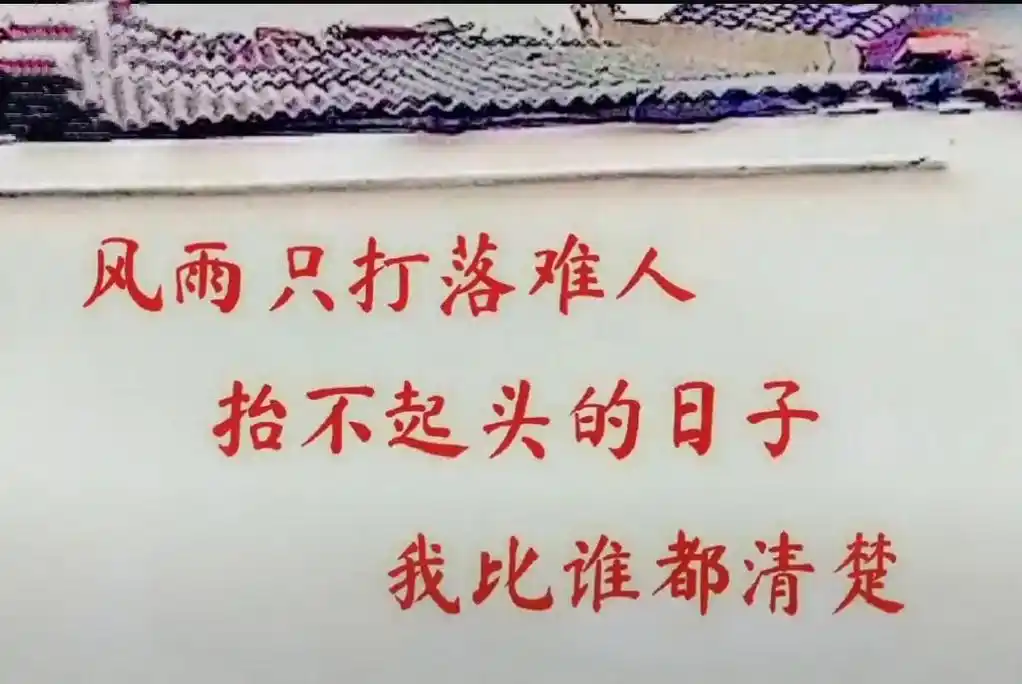 风雨只打落难人
抬不起头的日子
我比谁都清楚